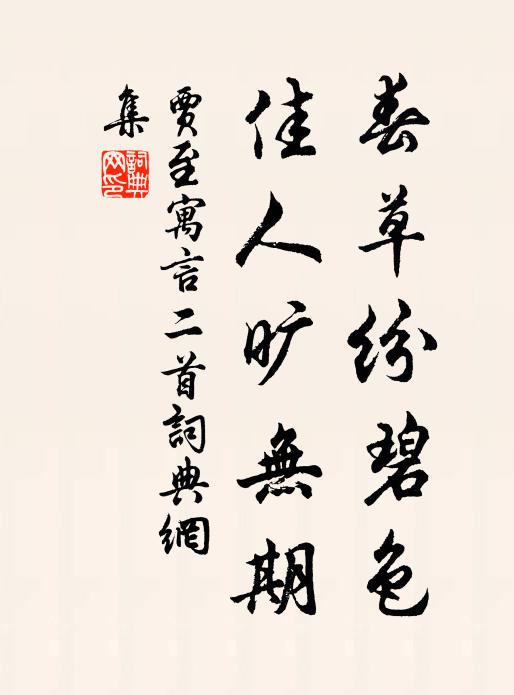 春草紛碧色
佳人曠無期
賈至寓言二首詞典網
集
詞典网印